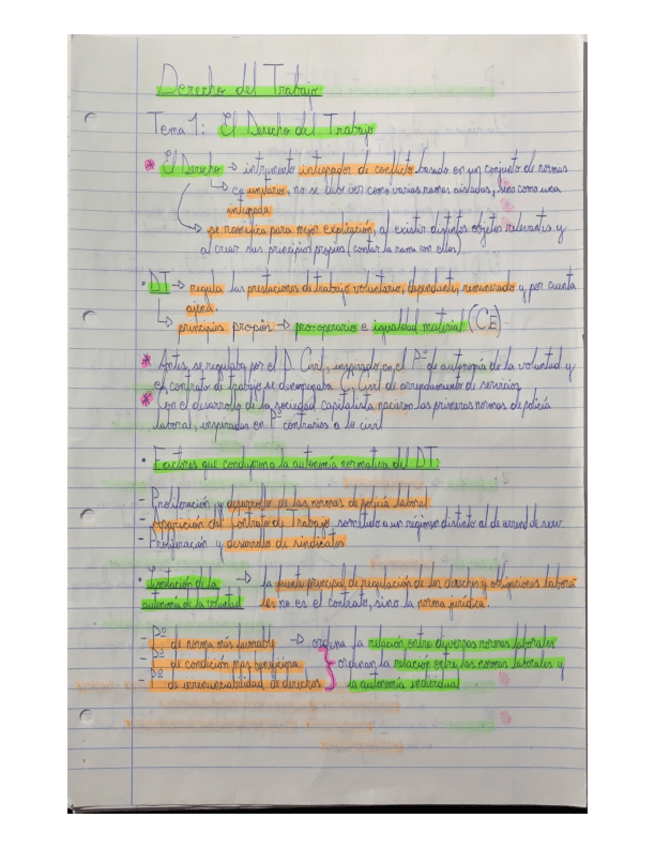 Derecho del Trabajo
Tema 1: El Derecho del Trabajo
* El Derecho → intrumento integrador de conflicto, basado en un conjunto de normas
↳ es unitario, no se debe ver como varias ramas aisladas, sino como una
integrada
↳ se ramifica para mejor explicación, al existir distintos objetos relevantes y
al crear sus principios propios (contar la rama con ellos)
· DT → regula las prestaciones de trabajo voluntario, dependiente, remunerado y por cuenta
ajena.
↳ principios propios → pro-operario e igualdad material (CE)
* Antes, se regulaba por el D. Civil, inspirado en el Pº de autonomía de la voluntad y
el contrato de trabajo se denominaba C. Civil de arrendamiento de servicios
* Con el desarrollo de la sociedad capitalista nacieron las primeras normas de policía
laboral, inspiradas en Pº contrarios a lo civil
· Factores que condujeron a la autonomía normativa del DT:
- Proliferación y desarrollo de las normas de policía laboral
- Aparición del Contrato de Trabajo sometido a un régimen distinto al de arrend de serv.
- Proliferación y desarrollo de sindicatos
· Limitación de la → la fuente principal de regulación de los derechos y obligaciones labora
autonomía de la voluntad les no es el contrato, sino la norma jurídica.
- Pº de norma más favorable → ordena la relación entre diversas normas laborales
- Pº de condición más beneficiosa } ordenan la relación entre las normas laborales y
- Pº de irrenunciabilidad de derechos la autonomía individual